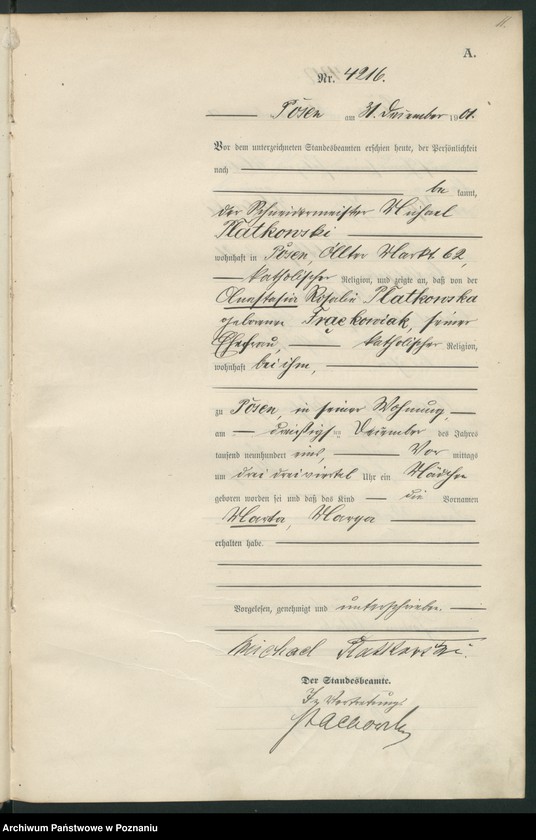 11.
A.
Nr. 4216.
Posen am 31. Dezember 1901.
Vor dem unterzeichneten Standesbeamten erschien heute, der Persönlichkeit
nach
be kannt,
der Schneidermeister Michael
Platkowski
wohnhaft in Posen, Alter Markt 62,
katholischer Religion, und zeigte an, daß von der
Anastasia Rosalie Platkowska
geborenen Frąckowiak, seiner
Ehefrau, katholischer Religion,
wohnhaft bei ihm,
zu Posen, in seiner Wohnung,
am dreißigsten Dezember des Jahres
tausend neunhundert eins, Vor mittags
um drei dreiviertel Uhr ein Mädchen
geboren worden sei und daß das Kind die Vornamen
Marta, Marya
erhalten habe.
Vorgelesen, genehmigt und unterschrieben.
Michael Platkowski.
Der Standesbeamte.
In Vertretung.
Archiwum Państwowe w Poznaniu